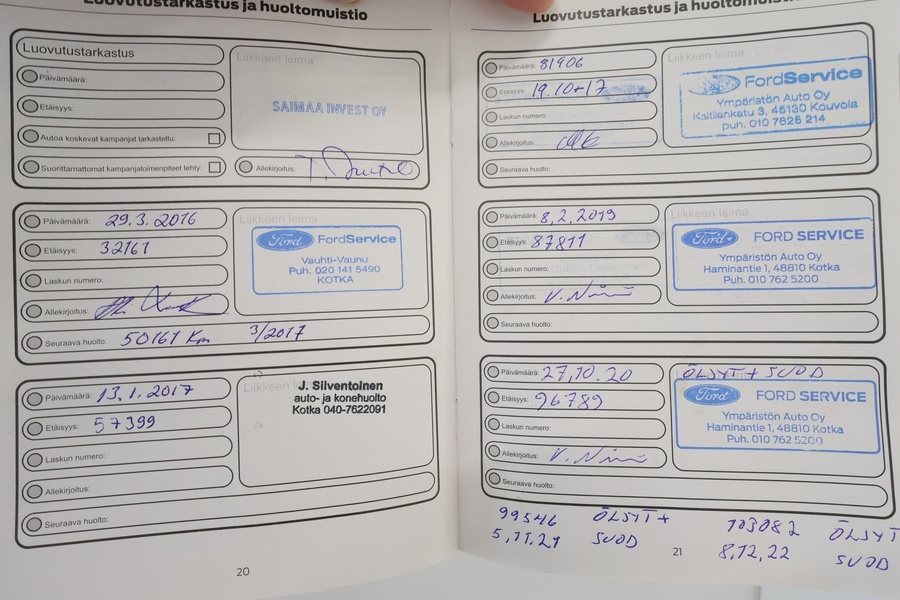 Luovutustarkastus ja huoltomuistio
Luovutustarkastus
Päivämäärä:
Etäisyys:
Autoa koskevat kampanjat tarkastettu:
Suorittamattomat kampanjatoimenpiteet tehty:
Liikkeen leima
SAIMAA INVEST OY
Allekirjoitus:
Päivämäärä: 29.3.2016
Etäisyys: 32161
Laskun numero:
Allekirjoitus:
Seuraava huolto: 50161 Km 3/2017
Liikkeen leima
Ford FordService
Vauhti-Vaunu
Puh. 020 141 5490
KOTKA
Päivämäärä: 13.1.2017
Etäisyys: 57399
Laskun numero:
Allekirjoitus:
Seuraava huolto:
Liikkeen
J. Silventoinen
auto- ja konehuolto
Kotka 040-7622091
20
Luovutustarkastus ja huoltomuistio
Päivämäärä: 81906
Etäisyys: 19.10-17
Laskun numero:
Allekirjoitus:
Seuraava huolto:
Liikkeen leima
FordService
Ympäristön Auto Oy
Kaitilankatu 3, 45130 Kouvola
puh. 010 7625 214
Päivämäärä: 8,2.2019
Etäisyys: 87811
Laskun numero:
Allekirjoitus:
Seuraava huolto:
Liikkeen leima
Ford FORD SERVICE
Ympäristön Auto Oy
Haminantie 1, 48810 Kotka
Puh. 010 762 5200
Päivämäärä: 27,10.20
Etäisyys: 96789
Laskun numero:
Allekirjoitus:
Seuraava huolto:
ÖLJYT + SUOD
Ford FORD SERVICE
Ympäristön Auto Oy
Haminantie 1, 48810 Kotka
Puh. 010 762 5200
99546 ÖLJYT +
5,11.21 SUOD
103082 ÖLJYT
8,12,22 SUOD
21